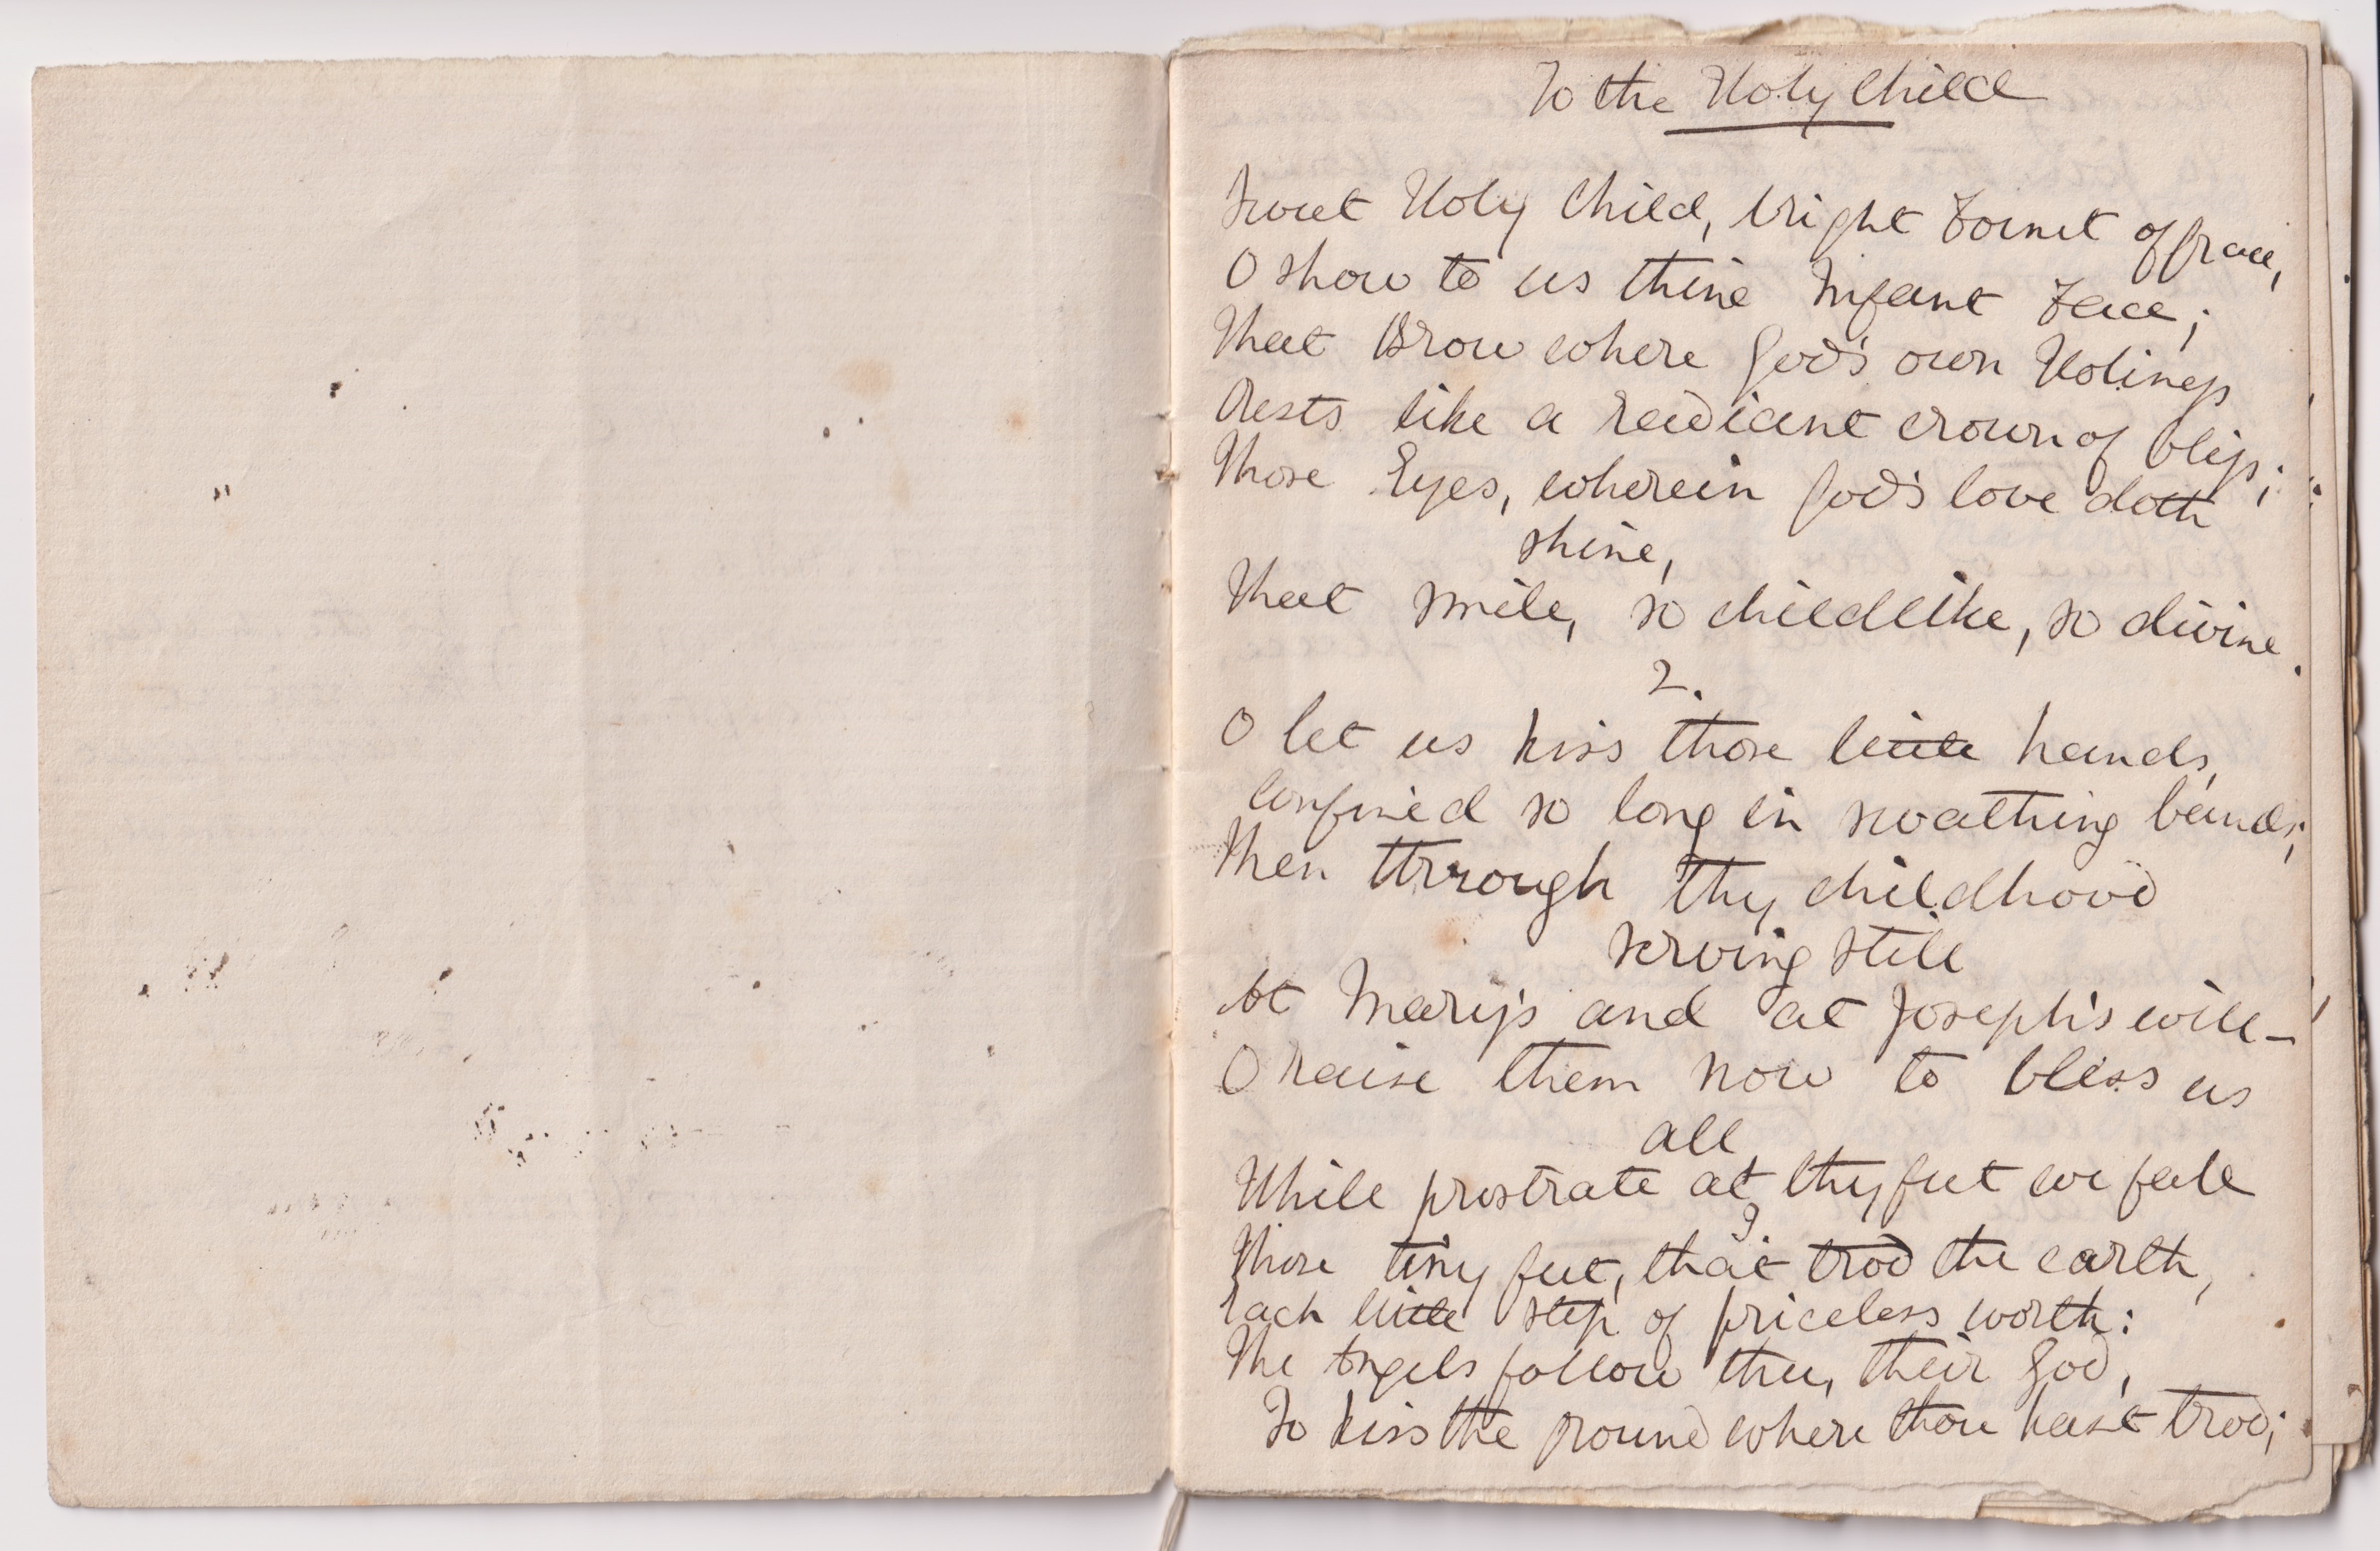 To the Holy Child
Sweet Holy Child, bright Fount of grace,
O show to us thine Infant Face;
That Brow where God's own Holiness
Rests like a radiant crown of bliss;
Those Eyes, wherein God's love doth
shine,
That smile, so childlike, so divine.
2.
O let us kiss those little hands,
Confined so long in swathing bands;
Then through thy childhood
serving still
At Mary's and at Joseph's will–
O raise them now to bless us
all
While prostrate at thy feet we fall
3
Those tiny feet, that trod the earth,
Each little step of priceless worth:
The Angels follow thee, their God,
To kiss the ground where thou hast trod;